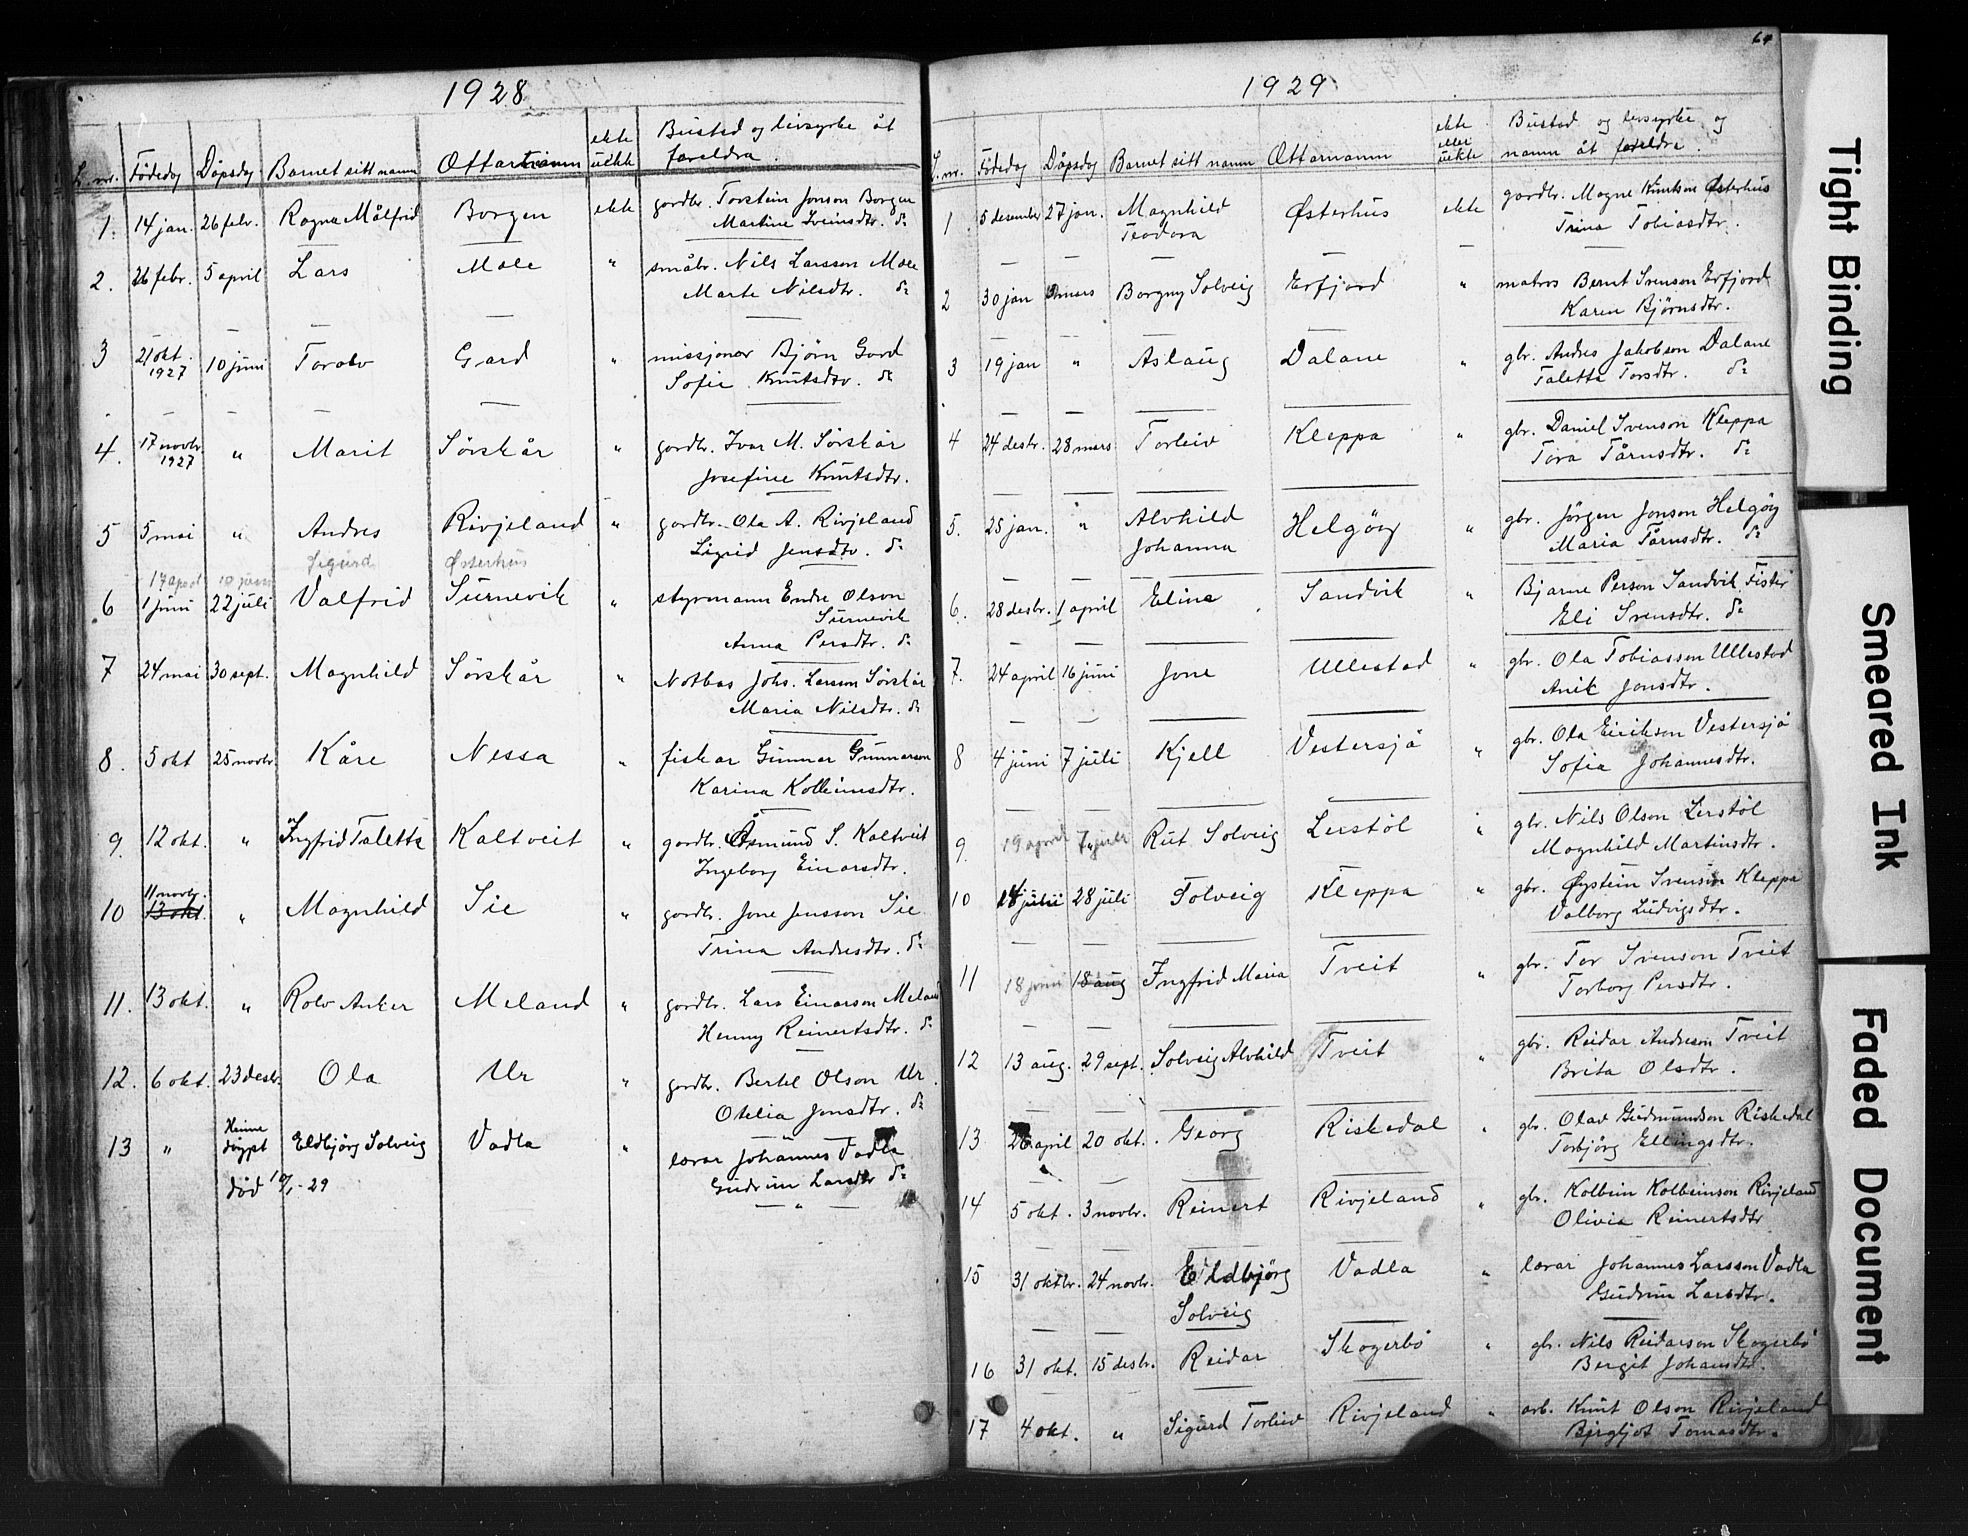 1928
L. nr. Fødedag Døpsdag Barnet sitt namn Ættarnamn ekte uekte Bustad og livsyrke åt foreldra.
1. 14 jan. 26 febr. Ragna Målfrid Borgen ekte gardbr. Torstein Jonson Borgen
Martine Sveinsdtr. do
2. 26 febr. 5 april Lars Mæle " småbr. Nils Larsson Mæle
Marte Nilsdtr. do
3 21 okt. 1927 10 juni Torolv Gard " missjonær Bjørn Gard
Sofie Knutsdtr. do
4. 17 novbr 1927 " Marit Sørskår " gardbr. Ivar M. Sørskår
Josefine Knutsdtr.
5 5 mai " Andres Rivjeland " gardbr. Ola A. Rivjeland
Sigrid Jensdtr. do
17 april 10 juni Sigurd Østerhus
6 1 juni 22 juli Valfrid Surnevik " styrmann Endre Olson
Surnevik
Anna Persdtr. do
7 24 mai 30 sept. Magnhild Sørskår " Notbas Johs. Larsson Sørskår
Maria Nilsdtr. do
8. 5 okt 25 novbr. Kåre Nessa " fiskar Gunnar Gunnarson
Karina Kolbeinsdtr.
9. 12 okt. " Ingfrid Taletta Kaltveit " gardbr. Åsmund S. Kaltveit
Ingeborg Einarsdtr.
11 novbr.
10 13 okt. " Magnhild Sie " gardbr. Jone Jensson Sie
Trina Andresdtr. do
11. 13 okt. " Rolv Anker Meland " gardbr. Lars Einarson Meland
Henny Reinertsdtr. do
12. 6 okt. 23 desbr. Ola Ur " gardbr. Bertel Olson Ur.
Otelia Jonsdtr. do
13 " Heime døypt Eldbjørg Solveig Vadla " lærar Johannes Vadla
død 10/1-29 Gudrun Larsdtr do
— " —
64
1929
L. nr. Fødedag Døpsdag Barnet sitt namn Ættarnamn ekte eller uekte Bustad og livsyrke og namn åt foreldra.
1 5 desember 27 jan. Magnhild Østerhus ekte gardbr. Magne Knutson Østerhus
Teodora Trina Tobiasdtr.
2 30 jan mars Borgny Solveig Erfjord " matros Bernt Svenson Erfjord
Karen Bjørnsdtr.
3 19 jan " Aslaug Dalane " gbr. Andres Jakobson Dalane
Taletta Torsdtr. do
4 24 desbr. 28 mars Torleiv Kleppa " gbr. Daniel Svenson Kleppa
Tora Tårnsdtr. do
5. 25 jan. " Alvhild Helgøy " gbr. Jørgen Jonson Helgøy
Johanna Maria Tårnsdtr. do
6. 28 desbr. 1 april Eline Sandvik " Bjarne Person Sandvik Fister
Eli Svensdtr. do
7. 24 april 16 juni Jone Ullestad " gbr. Ola Tobiassen Ullestad
Anik Jonsdtr.
8 4 juni 7 juli Kjell Vestersjø " gbr. Ola Eirikson Vestersjø
Sofia Johannesdtr.
9. 19 april 7 juli Rut Solveig Lerstøl " gbr. Nils Olson Lerstøl
Magnhild Martinsdtr.
10 14 juli 28 juli Solveig Kleppa " gbr. Øystein Svenson Kleppa
Valborg Ludvigsdtr.
11 18 juni 18 aug Ingfrid Maria Tveit " gbr. Tor Svenson Tveit
Torborg Persdtr.
12 13 aug. 29 sept. Solveig Alvhild Tveit " gbr. Reidar Andreson Tveit
Brita Olsdtr.
13 26 april 20 okt. Georg Riskedal " gbr. Olav Gudmundson Riskedal
Torbjørg Ellingsdtr.
14 5 okt. 3 novbr. Reinert Rivjeland " gbr. Kolbein Kolbeinson Rivjeland
Olivia Reinertsdtr
15 31 oktbr. 24 novbr. Eldbjørg Vadla " lærar Johannes Larsson Vadla
Solveig Gudrun Larsdtr.
16 31 okt. 15 desbr. Reidar Skogerbø " gbr. Nils Reidarson Skogerbø
Bergit Johansdtr.
17 4 okt. " Sigurd Torleiv Rivjeland " arb. Knut Olson Rivjeland
Bjergljot Tomasdtr.
Tight Binding
Smeared Ink
Faded Document